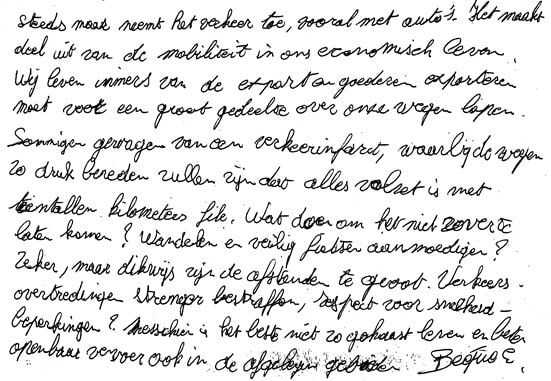 steeds maar neemt het verkeer toe, vooral met auto's. Het maakt
deel uit van de mobiliteit in ons economisch leven.
Wij leven immers van de export en goederen exporteren
moet voor een groot gedeelte over onze wegen lopen.
Sommigen gewagen van een verkeersinfarct, waarbij de wegen
zo druk bereden zullen zijn dat alles volzet is met
tientallen kilometers file. Wat doen om het niet zover te
laten komen? Wandelen en veilig fietsen aanmoedigen?
Zeker, maar dikwijls zijn de afstanden te groot. Verkeers-
overtredingen strenger bestraffen, respect voor snelheid-
beperkingen? Misschien is het beste niet zo gehaast leven en beter
openbaar vervoer ook in de afgelegen gebieden